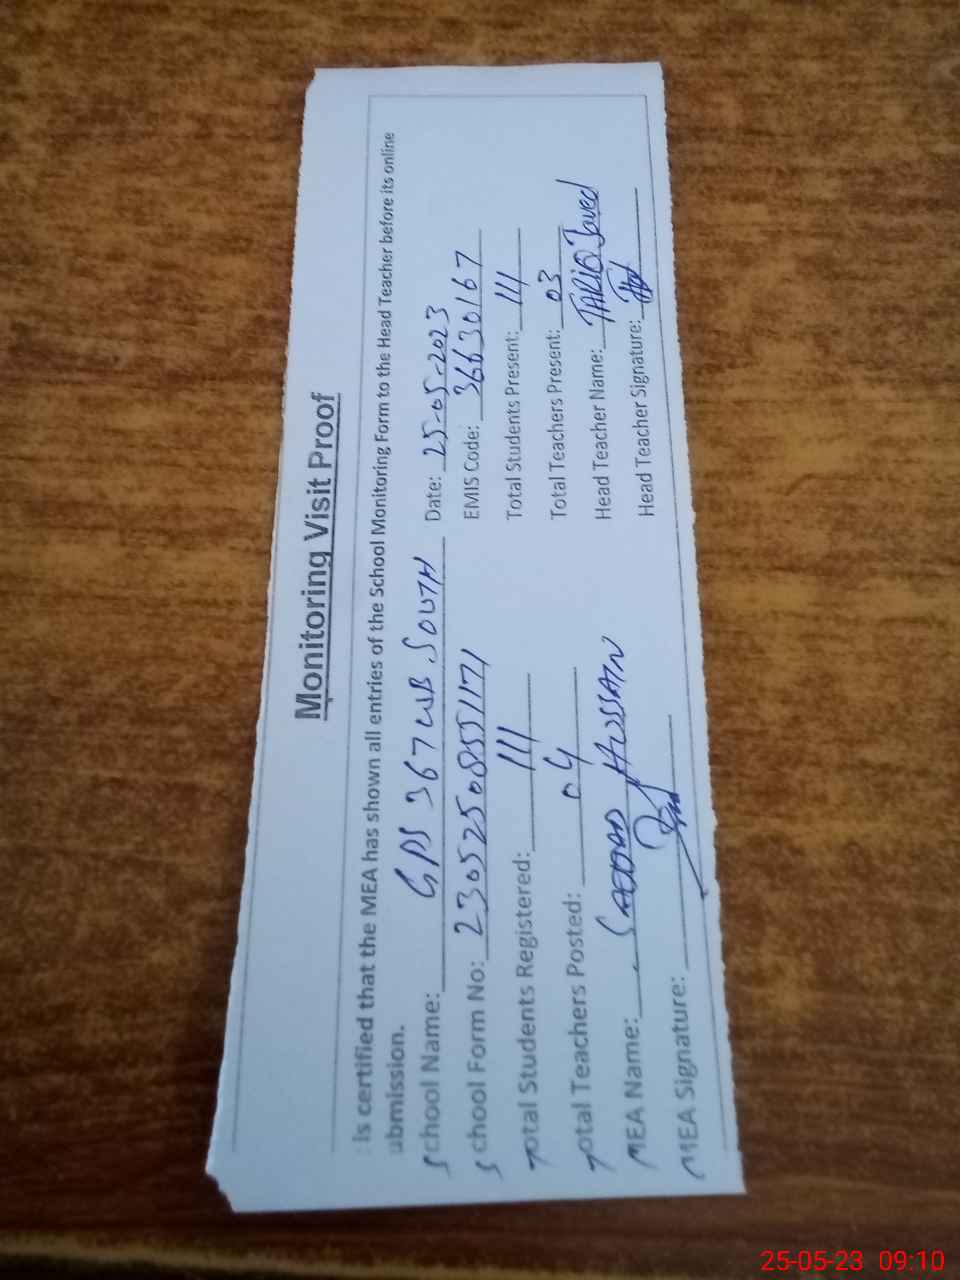 Monitoring Visit Proof
: is certified that the MEA has shown all entries of the School Monitoring Form to the Head Teacher before its online
ubmission.
School Name: GPS 367 WB SOUTH Date: 25-05-2023
School Form No: 23052508551171 EMIS Code: 36630167
Total Students Registered: 111 Total Students Present: 111
Total Teachers Posted: 04 Total Teachers Present: 03
MEA Name: HUSSAIN Head Teacher Name: TARIQ Javed
MEA Signature: Head Teacher Signature:
25-05-23 09:10